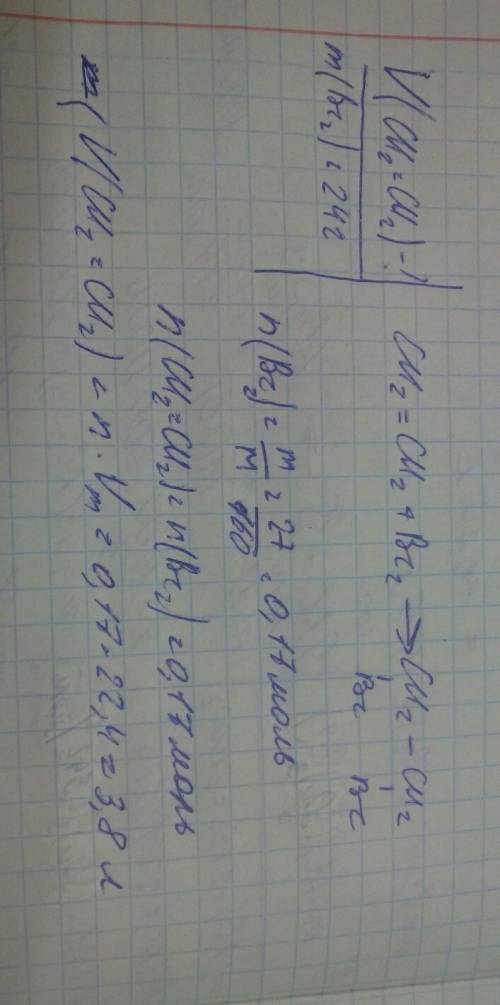 V(CH₂=CH₂)-?
m(Br₂)=24г
CH₂=CH₂+Br₂→CH₂-CH₂
Br Br
n(Br₂)=m/M=27/160=0,17моль
n(CH₂=CH₂)=n(Br₂)=0,17моль
V(CH₂=CH₂)=n·Vm=0,17·22,4=3,8 л